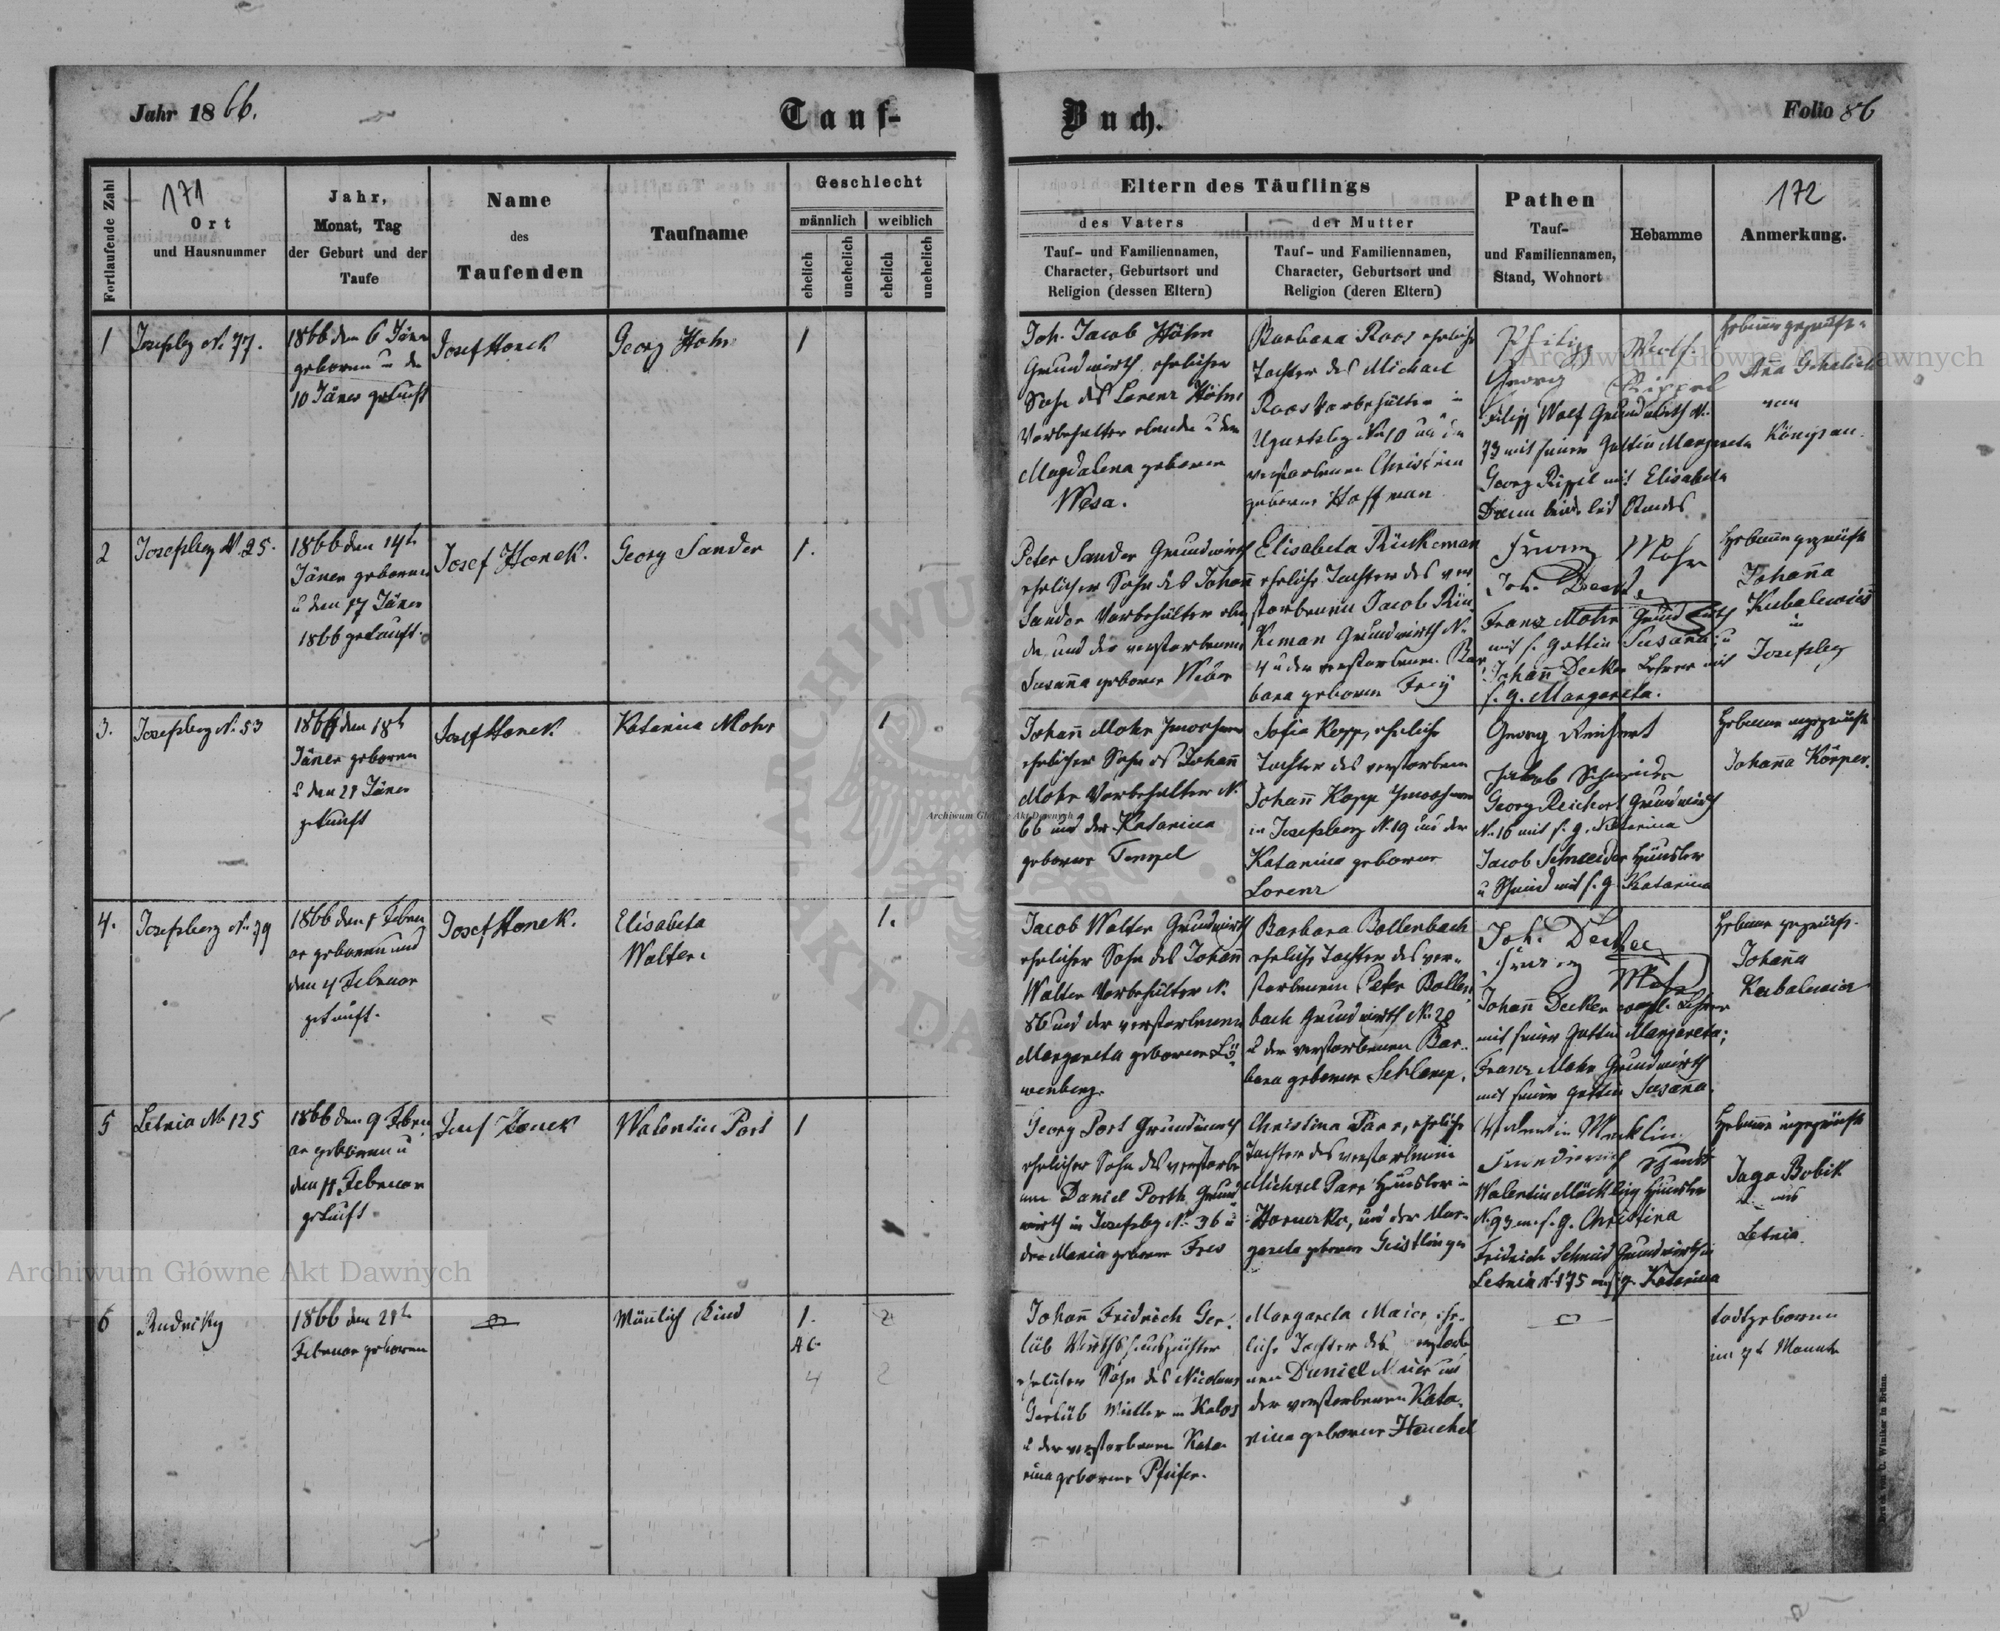 Jahr 1866.
Tauf-
Buch.
Folio 86
171
172
Fortlaufende Zahl
Ort
und Hausnummer
Jahr,
Monat, Tag
der Geburt und der
Taufe
Name
des
Taufenden
Taufname
Geschlecht
männlich
weiblich
ehelich
unehelich
ehelich
unehelich
Eltern des Täuflings
des Vaters
der Mutter
Tauf- und Familiennamen,
Character, Geburtsort und
Religion (dessen Eltern)
Tauf- und Familiennamen,
Character, Geburtsort und
Religion (deren Eltern)
Pathen
Tauf-
und Familiennamen,
Stand, Wohnort
Hebamme
Anmerkung.
1
Josefsbg N. 77.
1866 den 6 Jäner
geboren u den
10 Jäner getauft
Josef Honek
Georg Höhn
1
Joh. Jacob Höhn
Grundwirth ehelicher
Sohn des Lorenz Höhn
Vorbehalter u der
Magdalena geborene
Wesa.
Barbara Roos eheliche
Tochter des Michael
Roos Vorbehälter in
Ugartsbg N. 10 und der
verstorbenen Christina
geborene Hoffman
Philipp Wolf.
Georg Rippel
Filip Wolf Grundwirth N.
73 mit seiner Gattin Margareta
Georg Rippel mit Elisabeta
beide led Standes
Hebame geprüfte
Ana
von
Königsau.
2
Josefsberg N. 25.
1866 den 14t
Jäner geboren
u den 17 Jäner
1866 getauft.
Josef Honek.
Georg Sander
1.
Peter Sander Grundwirth
ehelicher Sohn des Johann
Sander Vorbehälter eben
da und der verstorbenen
Susanna geborne Weber
Elisabeta Rückeman
eheliche Tochter des ver
storbenen Jacob Rü
keman Grundwirth N.
4 u der verstorbenen Bar
bara geborene Frey
Franz Mohr
Joh. Decker
Franz Mohr Grundwirth
mit s. Gattin Susana; u
Johann Decker Lehrer mit
s. g. Margareta.
Hebamme geprüfte
Johanna
Kubalewicz
in
Josefsbg
3.
Josefsberg N. 53
1866 den 18t
Jäner geboren
u den 21 Jäner
getauft
Josef Honek.
Katarina Mohr
1
Johann Mohr Inwohner
ehelicher Sohn des Johann
Mohr Vorbehalter N.
66 und der Katarina
geborne Tempel
Sofia Kopp, eheliche
Tochter des verstorbenen
Johann Kopp Inwohner
in Josefsberg N. 19 und der
Katarina geborne
Lorenz
Georg Reichert
Jakob Schneider
Georg Reichert Grundwirth
N. 16 mit s. g. Katarina
Jacob Schneider Häusler
u Schmid mit s. g. Katarina
Hebame ungeprüfte
Johanna Körper.
4.
Josefsberg N. 79
1866 den 1 Febru
ar geboren und
den 4 Februar
getauft.
Josef Honek.
Elisabeta
Walter.
1.
Jacob Walter Grundwirth
ehelicher Sohn des Johann
Walter Vorbehälter N.
86 und der verstorbenen
Margareta geborene Lö
wenberg.
Barbara Bollenbach
eheliche Tochter des ver-
storbenen Peter Bollen
bach Grundwirth N. 20
u der verstorbenen Bar-
bara geborene Schlamp.
Joh. Decker
Franz
Mohr
Johann Decker evgl. Lehrer
mit seiner Gattin Margareta;
Franz Mohr Grundwirth
mit seiner Gattin Susanna.
Hebame geprüfte.
Johana
Kubalewicz
5
Letnia No 125
1866 den 9 Febru
ar geboren u
den 11 Februar
getauft.
Josef Honek
Walentin Port
1
Georg Port Grundwirth
ehelicher Sohn des verstorbe
nen Daniel Porth, Grund
wirth in Josefsbg N. 36 u
der Maria geborne Frey
Christina Parr, eheliche
Tochter des verstorbenen
Michael Parr Häusler in
Horucko, und der Mar-
gareta geborene Geistlinger
Walentin Mecklin
Friederich Schmid
Walentin Möckling Häusler
N. 93 m. s. g. Christina
Fridrich Schmid Grundwirth in
Letnia N. 175 mit s. g. Katarina
Hebamme ungeprüfte
Jaga Bobik
aus
Letnia.
6
Rudniky
1866 den 21t
Februar geboren
Mänlich Kind
1.
4
2
2
Johann Fridrich Ger-
lüb Wirthshauspächter
ehelicher Sohn des Nicolaus
Gerlüb Müller in Kalos
u der verstorbenen Kata-
rina geborene Pfeifer.
Margareta Maier ehe-
liche Tochter des verstorbe
nen Daniel Maier und
der verstorbenen Kata-
rina geborene Henchel
todtgeboren
im 7t Monate
Druck von C. Winiker in Brünn.
Archiwum Główne Akt Dawnych
Archiwum Główne Akt Dawnych
Archiwum Główne Akt Dawnych